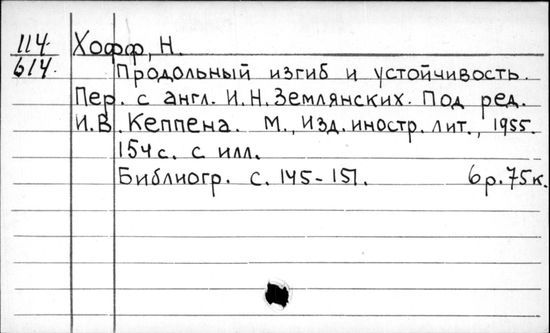 114 Хофф, Н.
614. Продольный изгиб и устойчивость.
Пер. с англ. И.Н.Землянских. Под ред.
И.В. Кеппена. М., Изд. иностр. лит., 1955.
154 с. с илл.
Библиогр. с. 145-151. 6р.75к.